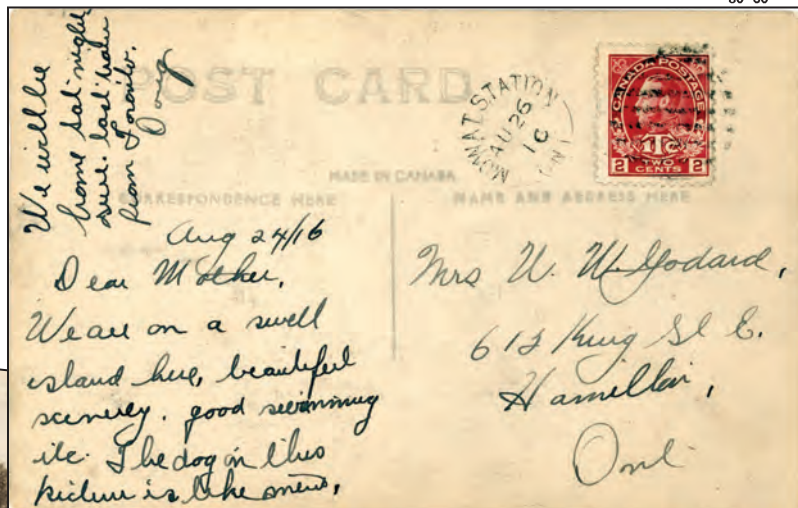 80 60
We will be
home Sat night
sure. last train
from Toronto.
Doug
POST CARD
MOWAT STATION
AU 26
16
ONT
CANADA POSTAGE
1Tc
2 TWO 2
CENTS
MADE IN CANADA
CORRESPONDENCE HERE
NAME AND ADDRESS HERE
Aug 24/16
Dear Mother,
We are on a swell
island here, beautiful
scenery. good swimming
etc. The dog in this
picture is like
Mrs W. W. Godard,
612 King St E.
Hamilton,
Ont